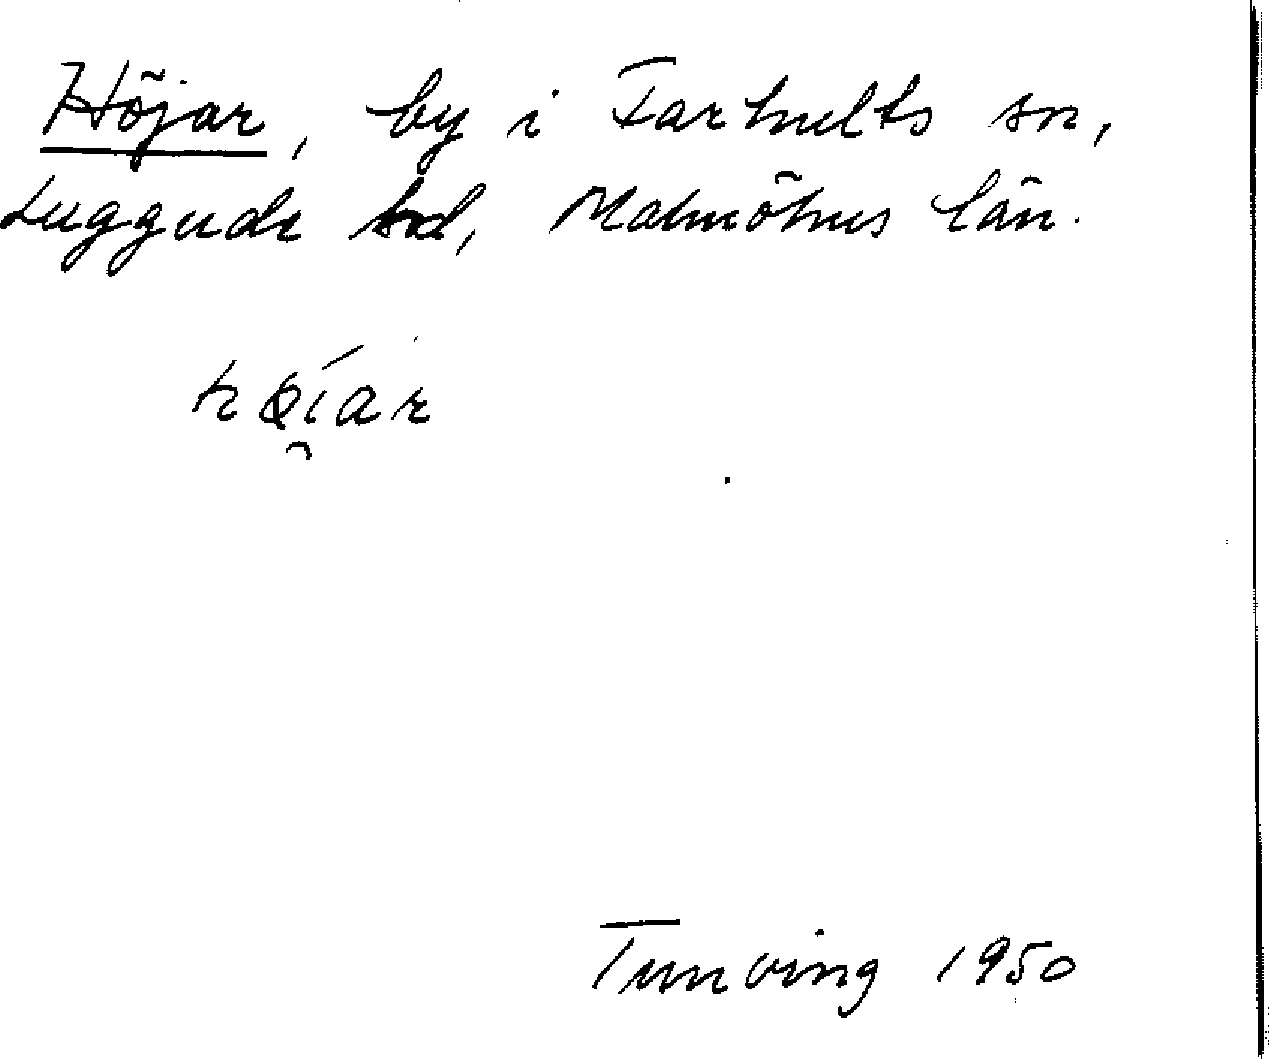 Höjar, by i Farhults sn,
Luggude hd, Malmöhus län.
hǿi̯ar
Tunving 1950